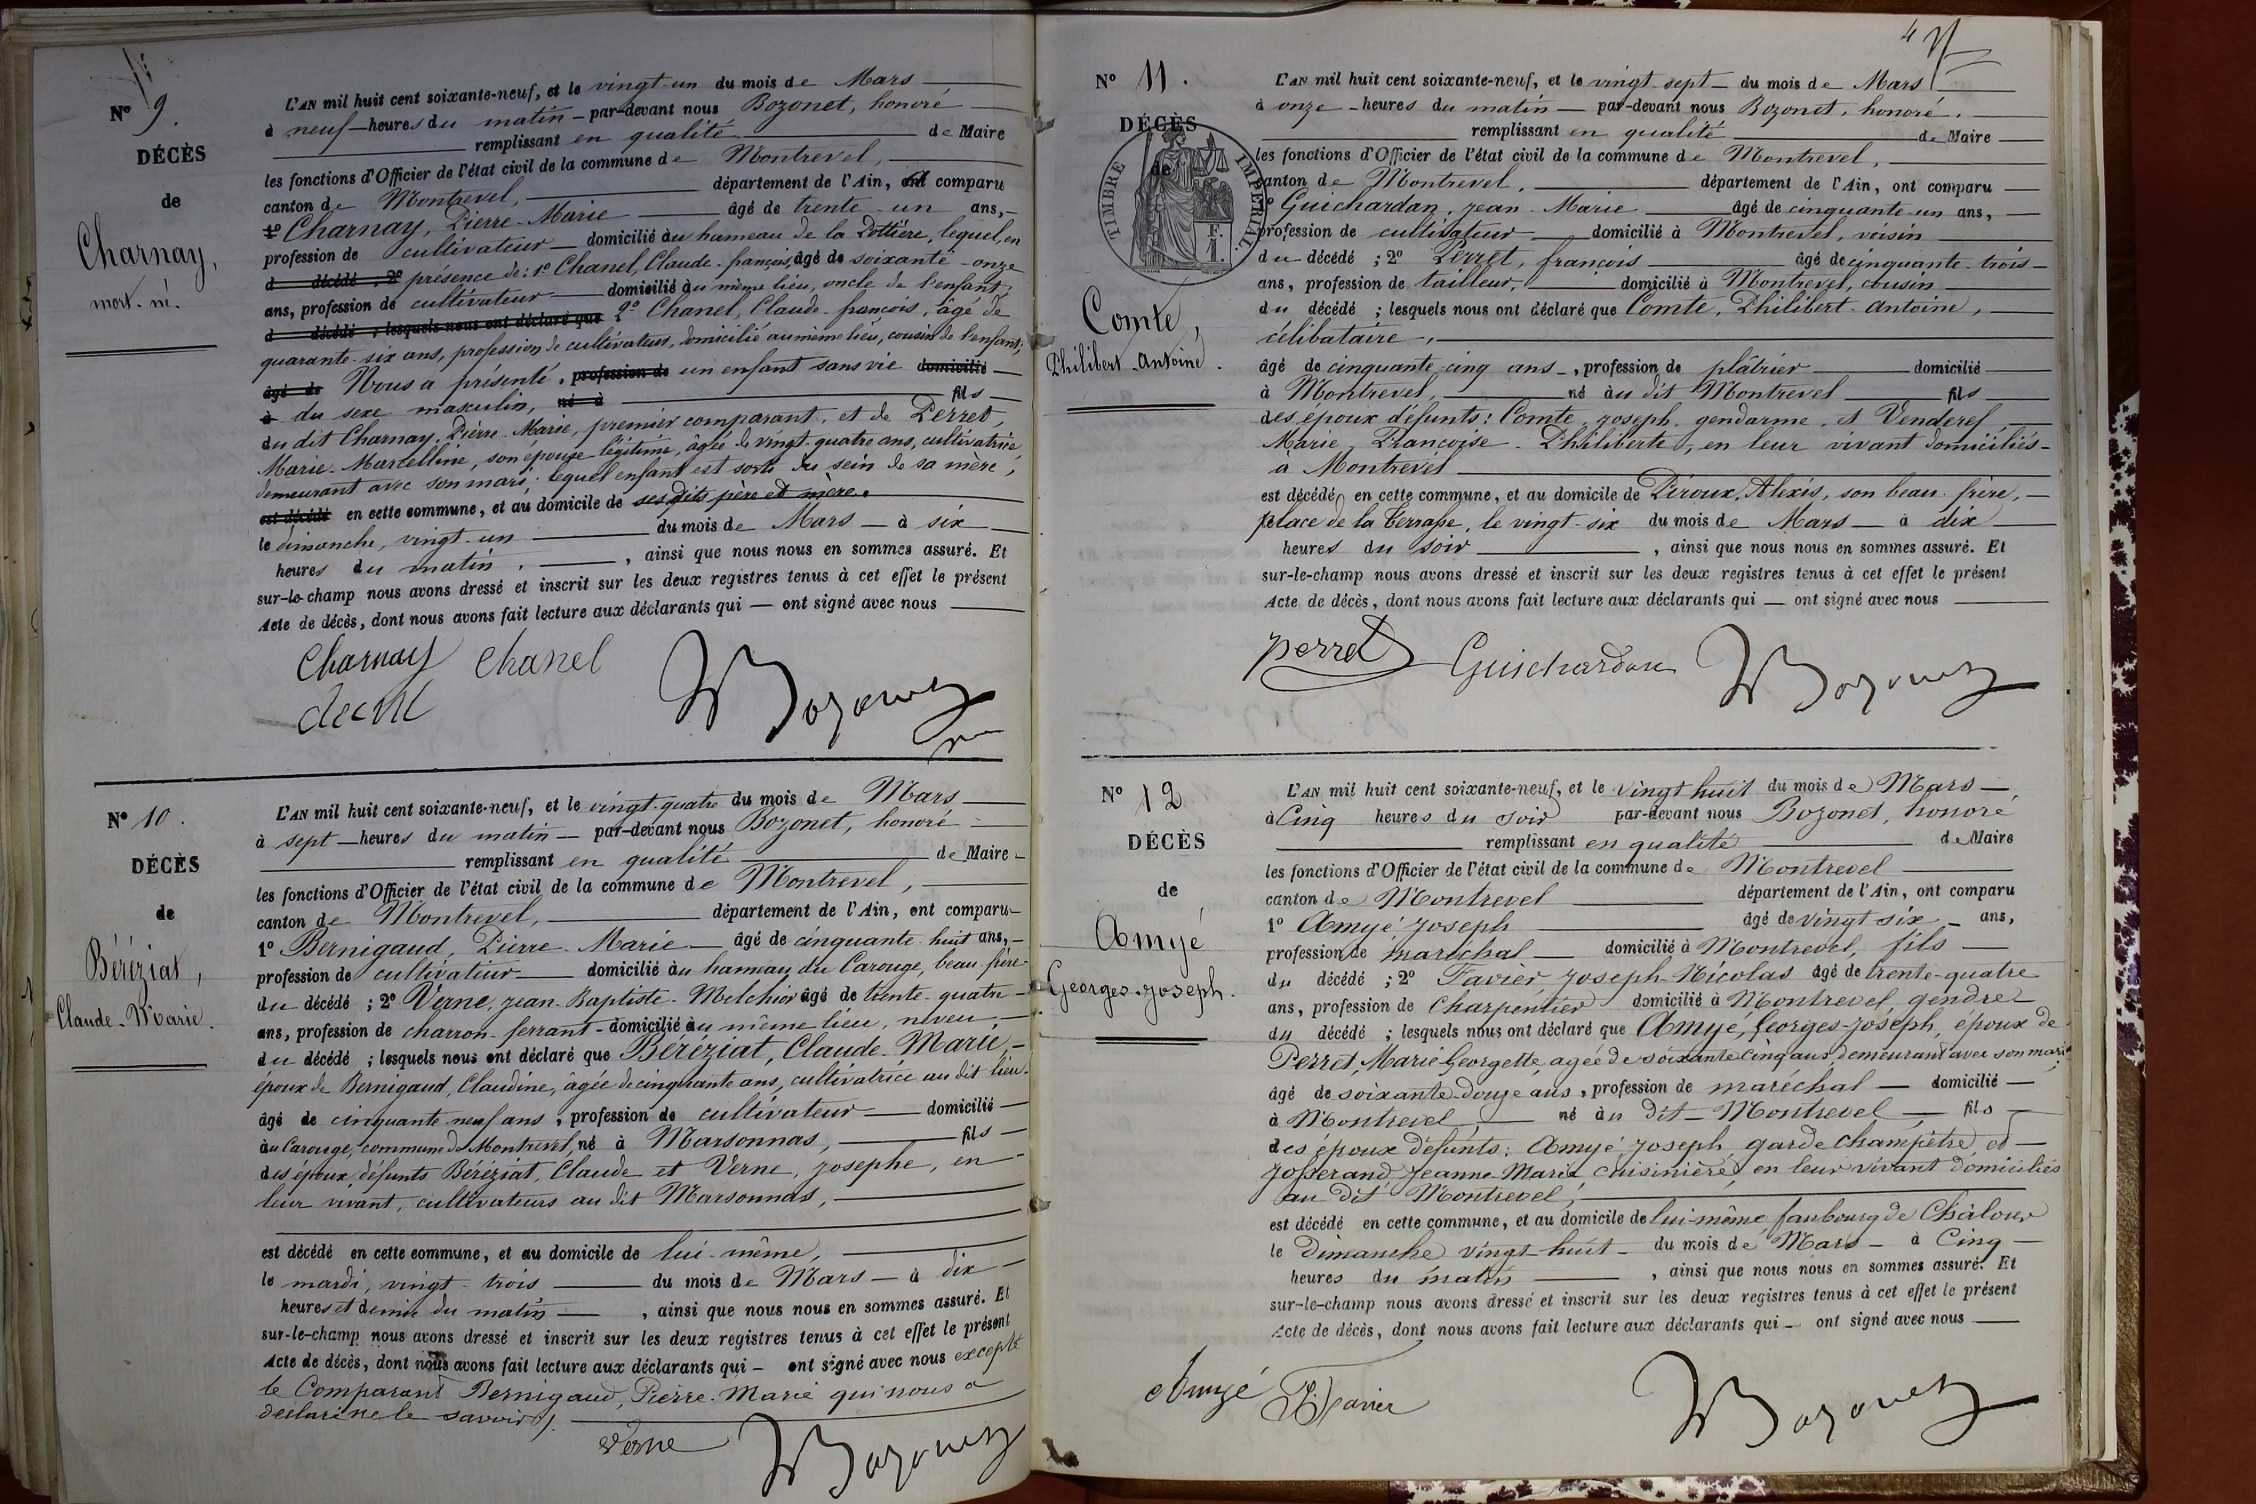 N° 9.
DÉCÈS
de
Charnay,
mort-né.
L'AN mil huit cent soixante-neuf, et le vingt-un du mois de Mars
à neuf heures du matin par-devant nous Bozonet, honoré
remplissant en qualité de Maire
les fonctions d'Officier de l'état civil de la commune de Montrevel,
canton de Montrevel, département de l'Ain, ont comparu
1° Charnay, Pierre-Marie âgé de trente-un ans,
profession de cultivateur domicilié au hameau de la Pottière, lequel, en
d décédé ; 2° présence de : 1° Chanel, Claude-françois, âgé de soixante-onze
ans, profession de cultivateur domicilié au même lieu, oncle de l'enfant,
d décédé ; lesquels nous ont déclaré que 2° Chanel, Claude-françois, âgé de
quarante-six ans, profession de cultivateur, domicilié au même lieu, cousin de l'enfant,
âgé de Nous a présenté, profession de un enfant sans vie domicilié
à du sexe masculin, né à fils
du dit Charnay, Pierre-Marie, premier comparant, et de Perret,
Marie-Marcelline, son épouse légitime, âgée de vingt-quatre ans, cultivatrice,
demeurant avec son mari ; lequel enfant est sorti du sein de sa mère,
est décédé en cette commune, et au domicile de ses dits père et mère.
le dimanche, vingt-un du mois de Mars à six
heures du matin, ainsi que nous nous en sommes assuré. Et
sur-le-champ nous avons dressé et inscrit sur les deux registres tenus à cet effet le présent
Acte de décès, dont nous avons fait lecture aux déclarants qui ont signé avec nous
Charnay Chanel Bozonet
N° 10.
DÉCÈS
de
Béréziat,
Claude-Marie.
L'AN mil huit cent soixante-neuf, et le vingt-quatre du mois de Mars
à sept heures du matin par-devant nous Bozonet, honoré
remplissant en qualité de Maire
les fonctions d'Officier de l'état civil de la commune de Montrevel,
canton de Montrevel, département de l'Ain, ont comparu
1° Bernigaud, Pierre-Marie âgé de cinquante-huit ans,
profession de cultivateur domicilié au hameau du Carouge, beau frère
du décédé ; 2° Verne, jean-Baptiste-Melchior âgé de trente-quatre
ans, profession de charron-ferrant domicilié au même lieu, neveu,
du décédé ; lesquels nous ont déclaré que Béréziat, Claude-Marie,
époux de Bernigaud, Claudine, âgée de cinquante ans, cultivatrice au dit lieu.
âgé de cinquante-neuf ans, profession de cultivateur domicilié
au Carouge, commune de Montrevel, né à Marsonnas, fils
des époux défunts Béréziat, Claude et Verne, josephe, en
leur vivant, cultivateurs au dit Marsonnas,
est décédé en cette commune, et au domicile de lui-même,
le mardi, vingt-trois du mois de Mars à dix
heures et demie du matin, ainsi que nous nous en sommes assuré. Et
sur-le-champ nous avons dressé et inscrit sur les deux registres tenus à cet effet le présent
Acte de décès, dont nous avons fait lecture aux déclarants qui ont signé avec nous excepté
le Comparant Bernigaud, Pierre-Marie qui nous a
déclaré ne le savoir.
Verne Bozonet
4
N° 11.
DÉCÈS
de
TIMBRE IMPÉRIAL.
1 F.
Comte,
Philibert-Antoine.
L'AN mil huit cent soixante-neuf, et le vingt-sept du mois de Mars
à onze heures du matin par-devant nous Bozonet, honoré.
remplissant en qualité de Maire
les fonctions d'Officier de l'état civil de la commune de Montrevel,
canton de Montrevel, département de l'Ain, ont comparu
1° Guichardan, jean-Marie âgé de cinquante-un ans,
profession de cultivateur domicilié à Montrevel, voisin
du décédé ; 2° Perret, françois âgé de cinquante-trois
ans, profession de tailleur, domicilié à Montrevel, cousin
du décédé ; lesquels nous ont déclaré que Comte, Philibert-Antoine,
célibataire,
âgé de cinquante-cinq ans, profession de plâtrier domicilié
à Montrevel, né au dit Montrevel fils
des époux défunts : Comte, joseph, gendarme, et Venderef,
Marie-Françoise-Philiberte, en leur vivant domiciliés
à Montrevel
est décédé en cette commune, et au domicile de Péroux, Alexis, son beau-frère,
place de la Terrasse, le vingt-six du mois de Mars à dix
heures du soir, ainsi que nous nous en sommes assuré. Et
sur-le-champ nous avons dressé et inscrit sur les deux registres tenus à cet effet le présent
Acte de décès, dont nous avons fait lecture aux déclarants qui ont signé avec nous
perret Guichardan Bozonet
N° 12
DÉCÈS
de
Amyé
Georges-joseph.
L'AN mil huit cent soixante-neuf, et le vingt huit du mois de Mars
à Cinq heures du soir par-devant nous Bozonet, honoré
remplissant en qualité de Maire
les fonctions d'Officier de l'état civil de la commune de Montrevel
canton de Montrevel département de l'Ain, ont comparu
1° Amyé joseph âgé de vingt six ans,
profession de maréchal domicilié à Montrevel, fils
du décédé ; 2° Favier, joseph-Nicolas âgé de trente-quatre
ans, profession de Charpentier domicilié à Montrevel, gendre
du décédé ; lesquels nous ont déclaré que Amyé, Georges-joseph, époux de
Perret, Marie-Georgette, agée de soixante cinq ans demeurant avec son mari
âgé de soixante-douze ans, profession de maréchal domicilié
à Montrevel né au dit Montrevel, fils
des époux défunts : Amyé joseph garde champêtre, et
josserand, jeanne-Marie cuisinière, en leur vivant domiciliés
au dit Montrevel,
est décédé en cette commune, et au domicile de lui-même faubourg de Châlour
le Dimanche vingt-huit du mois de Mars à Cinq
heures du matin, ainsi que nous nous en sommes assuré. Et
sur-le-champ nous avons dressé et inscrit sur les deux registres tenus à cet effet le présent
Acte de décès, dont nous avons fait lecture aux déclarants qui ont signé avec nous
Amyé Favier Bozonet